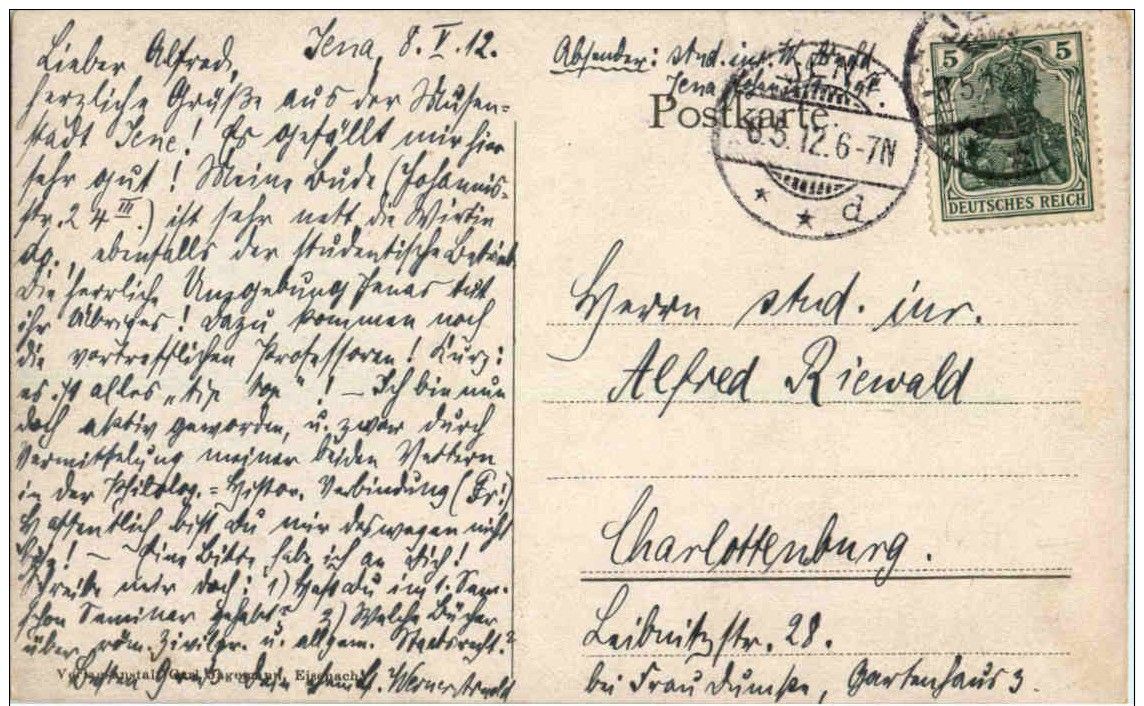 Jena, 8.V.12.
Lieber Alfred,
herzliche Grüße aus der Musen-
stadt Jena! Es gefällt mir hier
sehr gut! Meine Bude (Johannis-
str. 24 III) ist sehr nett die Wirtin
do., ebenfalls der studentische Betrieb.
Die herrliche Umgebung Jenas tut
ihr Übriges! Dazu kommen noch
die vortrefflichen Professoren! Kurz:
es ist alles „tip top"! – Ich bin nun
doch aktiv geworden, u. zwar durch
Vermittelung meiner beiden Vettern
in der Philolog.=Histor. Verbindung
Hoffentlich bist Du mir deswegen nicht
bös! – Eine Bitte habe ich an Dich!
Schreibe mir doch: 1) Hast Du im 1. Sem.
schon Seminar gehabt? 2) Welche Bücher
über röm. Zivilpr. u. allgem. Staatsrecht?
Besten Gruß Dein Werner Arnold
Verlagsanstalt Eisenach
Absender: stud. iur. W. Arnold
Jena
Postkarte.
8.5.12.6-7N
* * d
5 5
DEUTSCHES REICH
Herrn stud. iur.
Alfred Riewald
Charlottenburg.
Leibnitzstr. 28.
bei Frau Dumke, Gartenhaus 3.